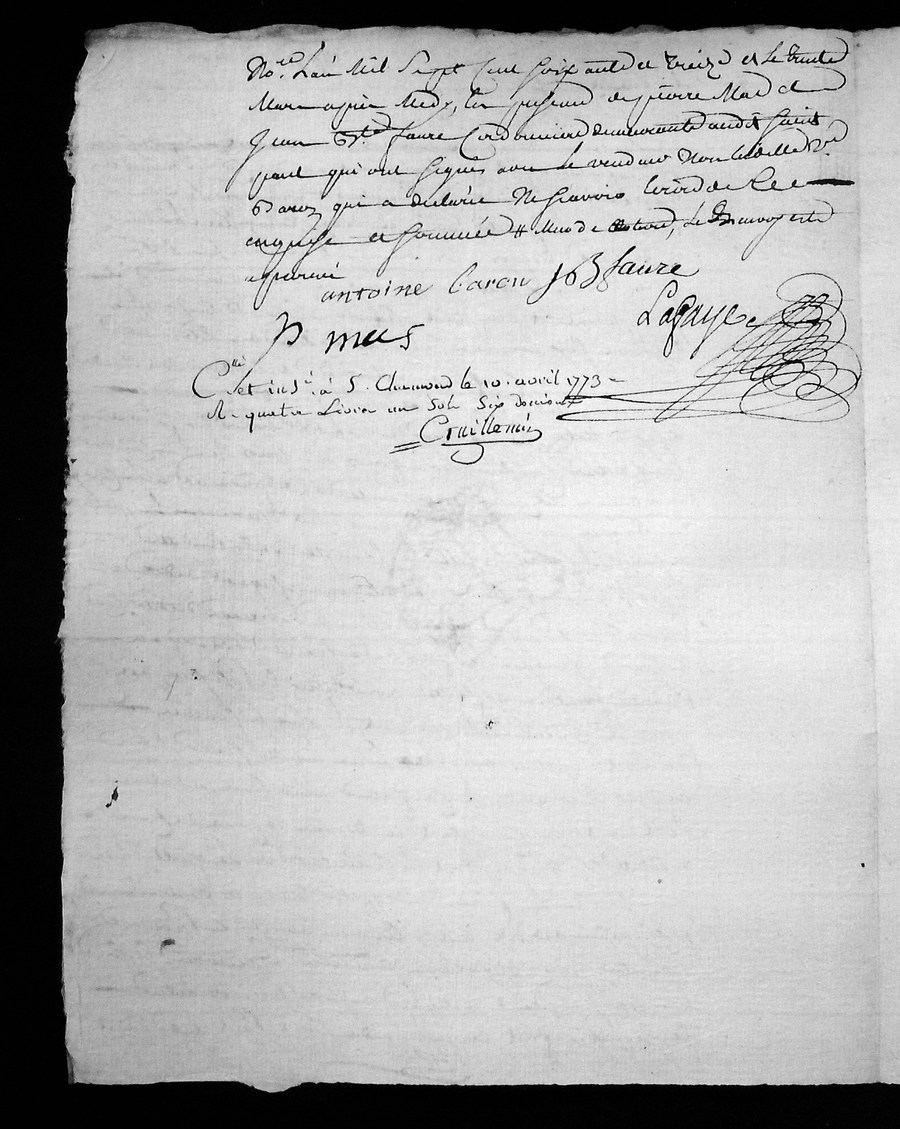 No.re L'an Mil Sept Cent Soixante et treize et Le trente
Mars après Midy, En présence de pierre Mas et
Jean B.te faure Cordonniers demeurants audit Saint
paul qui ont signés avec le vendeur Non ladite
Baron qui a déclaré Ne sçavoir Ecrire de Ce
enquise et sommée # Mas de
approuvé
antoine baron J b faure
P mas Lafaye
C.llé et ins.é à S. Chamond le 10. avril 1773
R. quatre Livres un Sols Six deniers